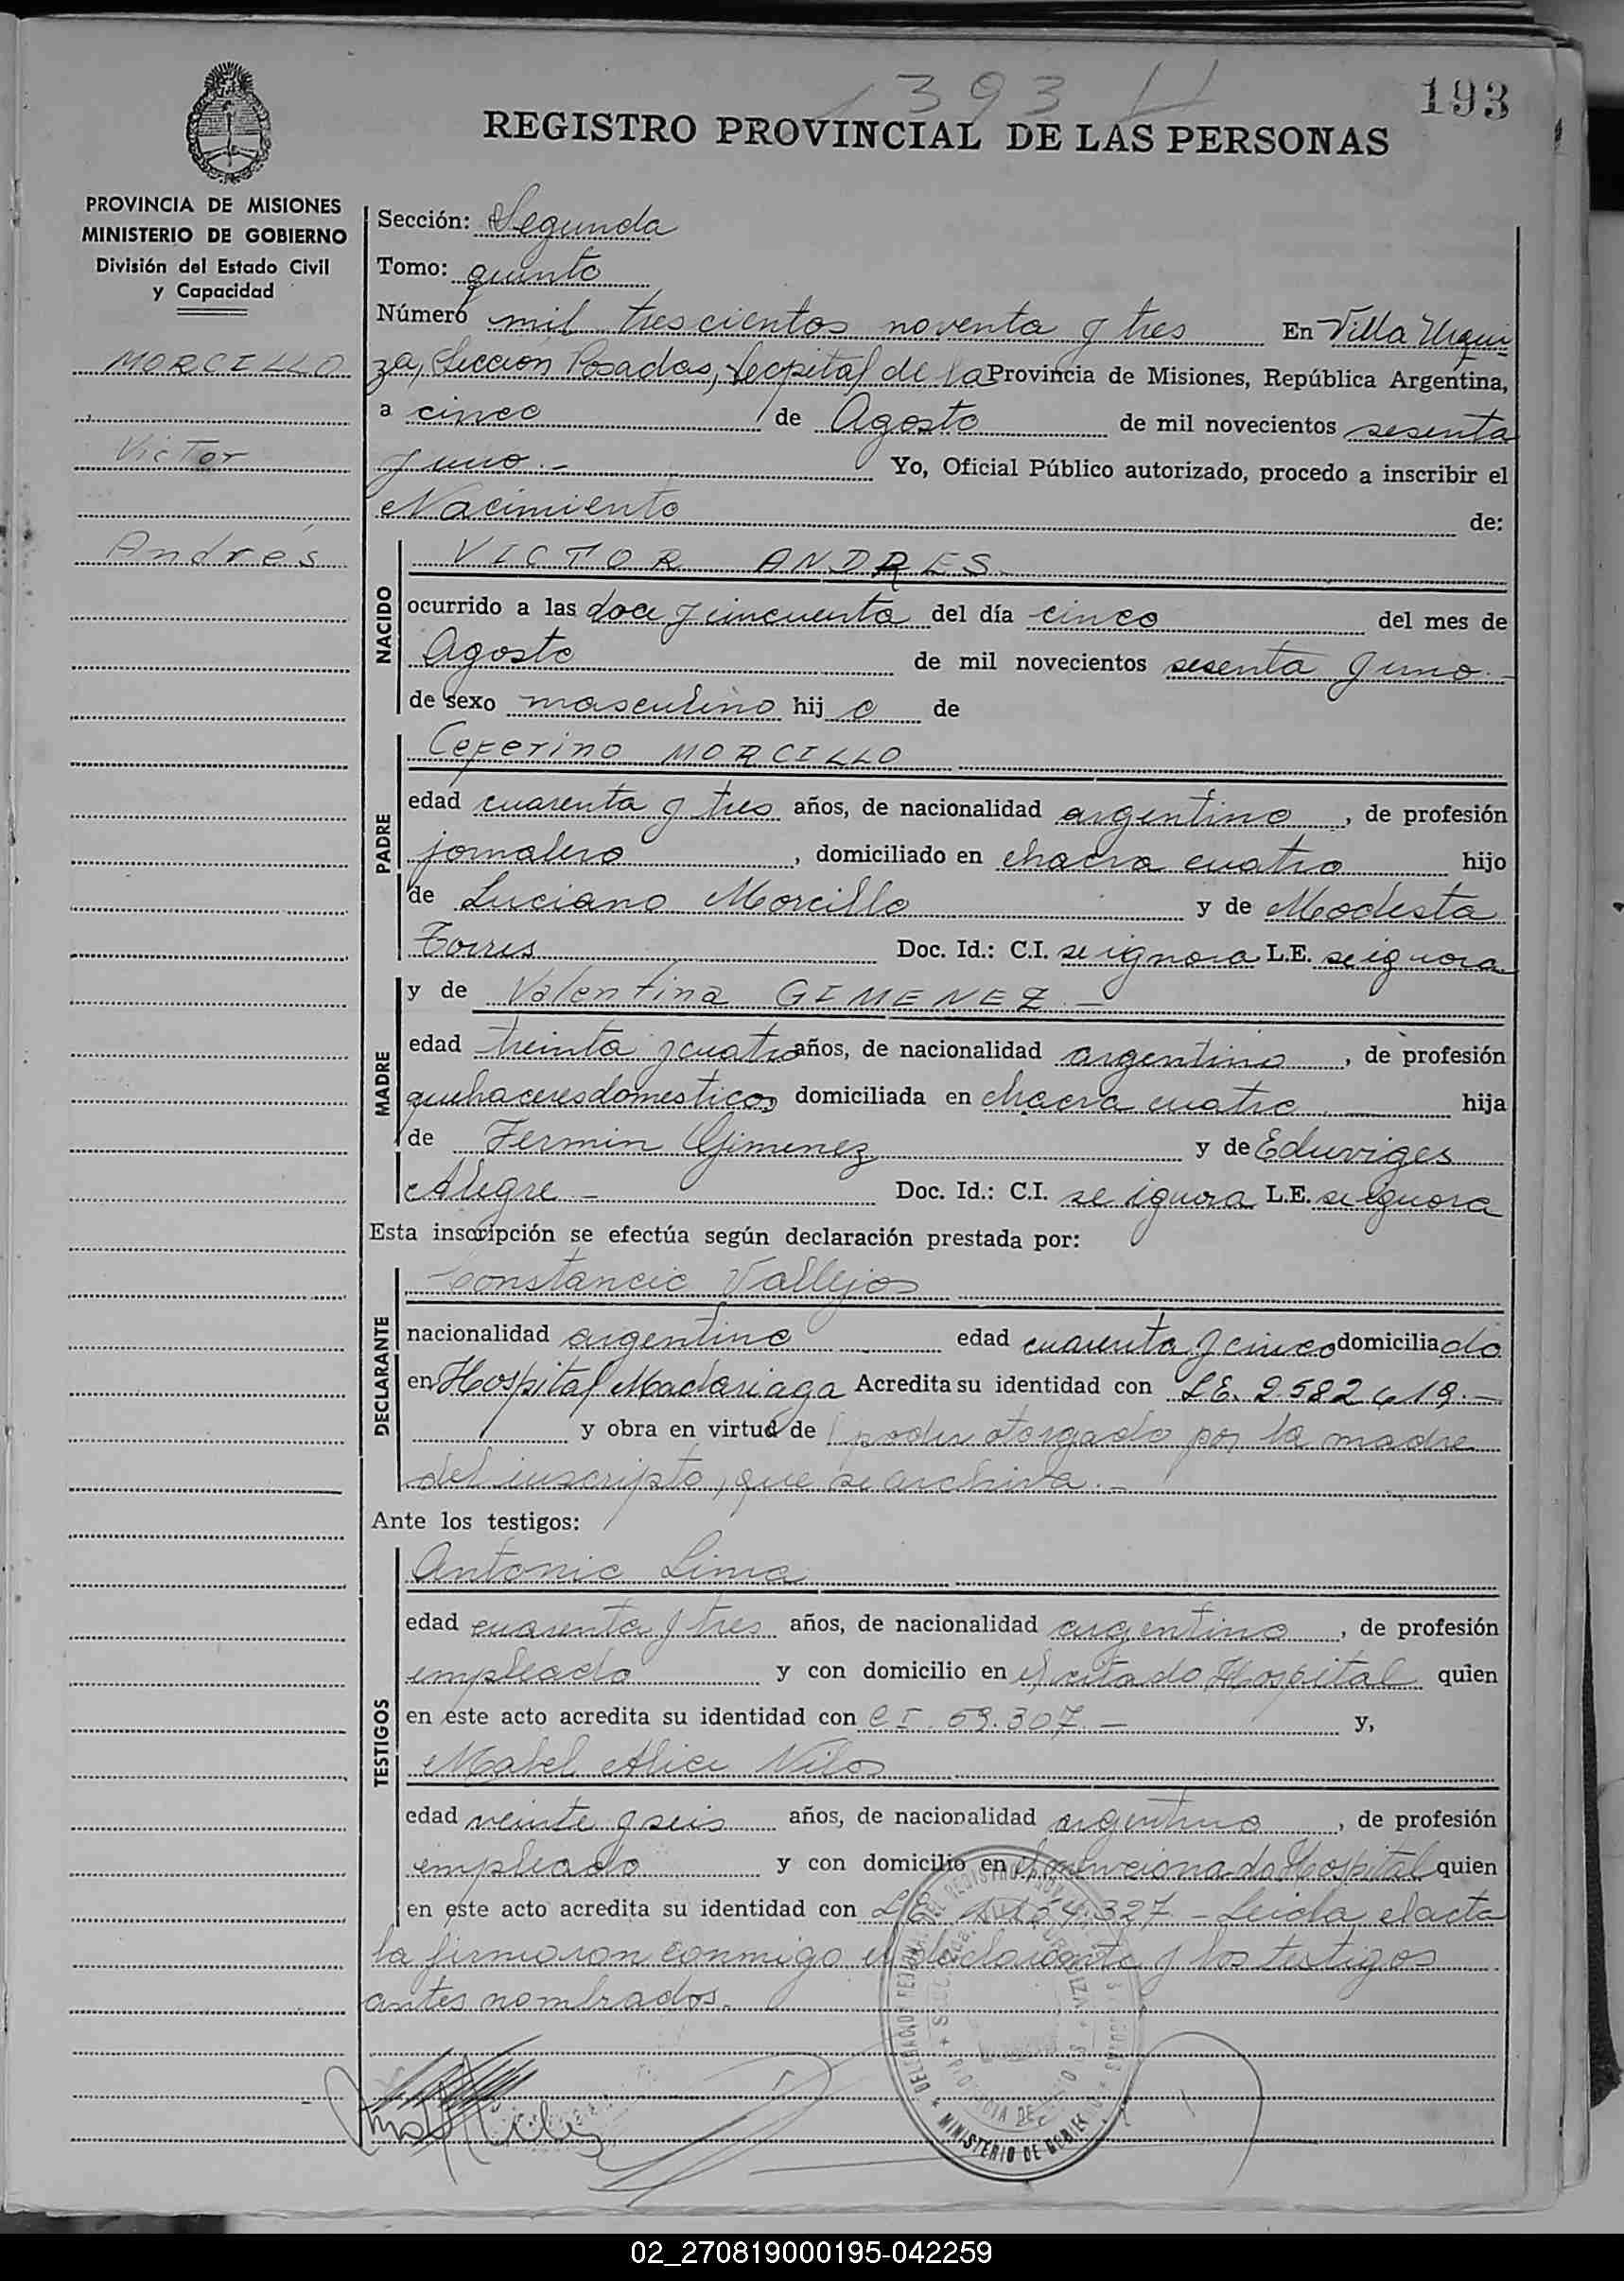 1393
193
REGISTRO PROVINCIAL DE LAS PERSONAS
PROVINCIA DE MISIONES
MINISTERIO DE GOBIERNO
División del Estado Civil
y Capacidad
MORCILLO
Victor
Andrés
Sección: Segunda
Tomo: quinto
Número mil trescientos noventa y tres En Villa Urqui
za, Sección Posadas, Capital de la Provincia de Misiones, República Argentina,
a cinco de Agosto de mil novecientos sesenta
y uno.- Yo, Oficial Público autorizado, procedo a inscribir el
Nacimiento de:
NACIDO
VICTOR ANDRES
ocurrido a las doce y cincuenta del día cinco del mes de
Agosto de mil novecientos sesenta y uno.-
de sexo masculino hijo de
PADRE
Ceferino MORCILLO
edad cuarenta y tres años, de nacionalidad argentino, de profesión
jornalero, domiciliado en chacra cuatro hijo
de Luciano Morcillo y de Modesta
Torres Doc. Id.: C.I. se ignora L.E. se ignora
MADRE
y de Valentina GIMENEZ.-
edad treinta y cuatro años, de nacionalidad argentina, de profesión
quehaceres domesticos, domiciliada en chacra cuatro hija
de Fermin Gimenez y de Eduviges
Alegre.- Doc. Id.: C.I. se ignora L.E. se ignora
Esta inscripción se efectúa según declaración prestada por:
DECLARANTE
Constancio Vallejos
nacionalidad argentino edad cuarenta y cinco domiciliado
en Hospital Madariaga Acredita su identidad con L.E. 2.582.419.-
y obra en virtud de poder otorgado por la madre
del inscripto, que se archiva.-
Ante los testigos:
TESTIGOS
Antonio Lima
edad cuarenta y tres años, de nacionalidad argentino, de profesión
empleado y con domicilio en el citado Hospital quien
en este acto acredita su identidad con C.I. 69.307.- y,
Mabel Alice
edad veinte y seis años, de nacionalidad argentina, de profesión
empleado y con domicilio en el mencionado Hospital quien
en este acto acredita su identidad con - Leida el acta
la firmaron conmigo el declarante y los testigos
antes nombrados.
MINISTERIO DE GOBIERNO
02_270819000195-042259